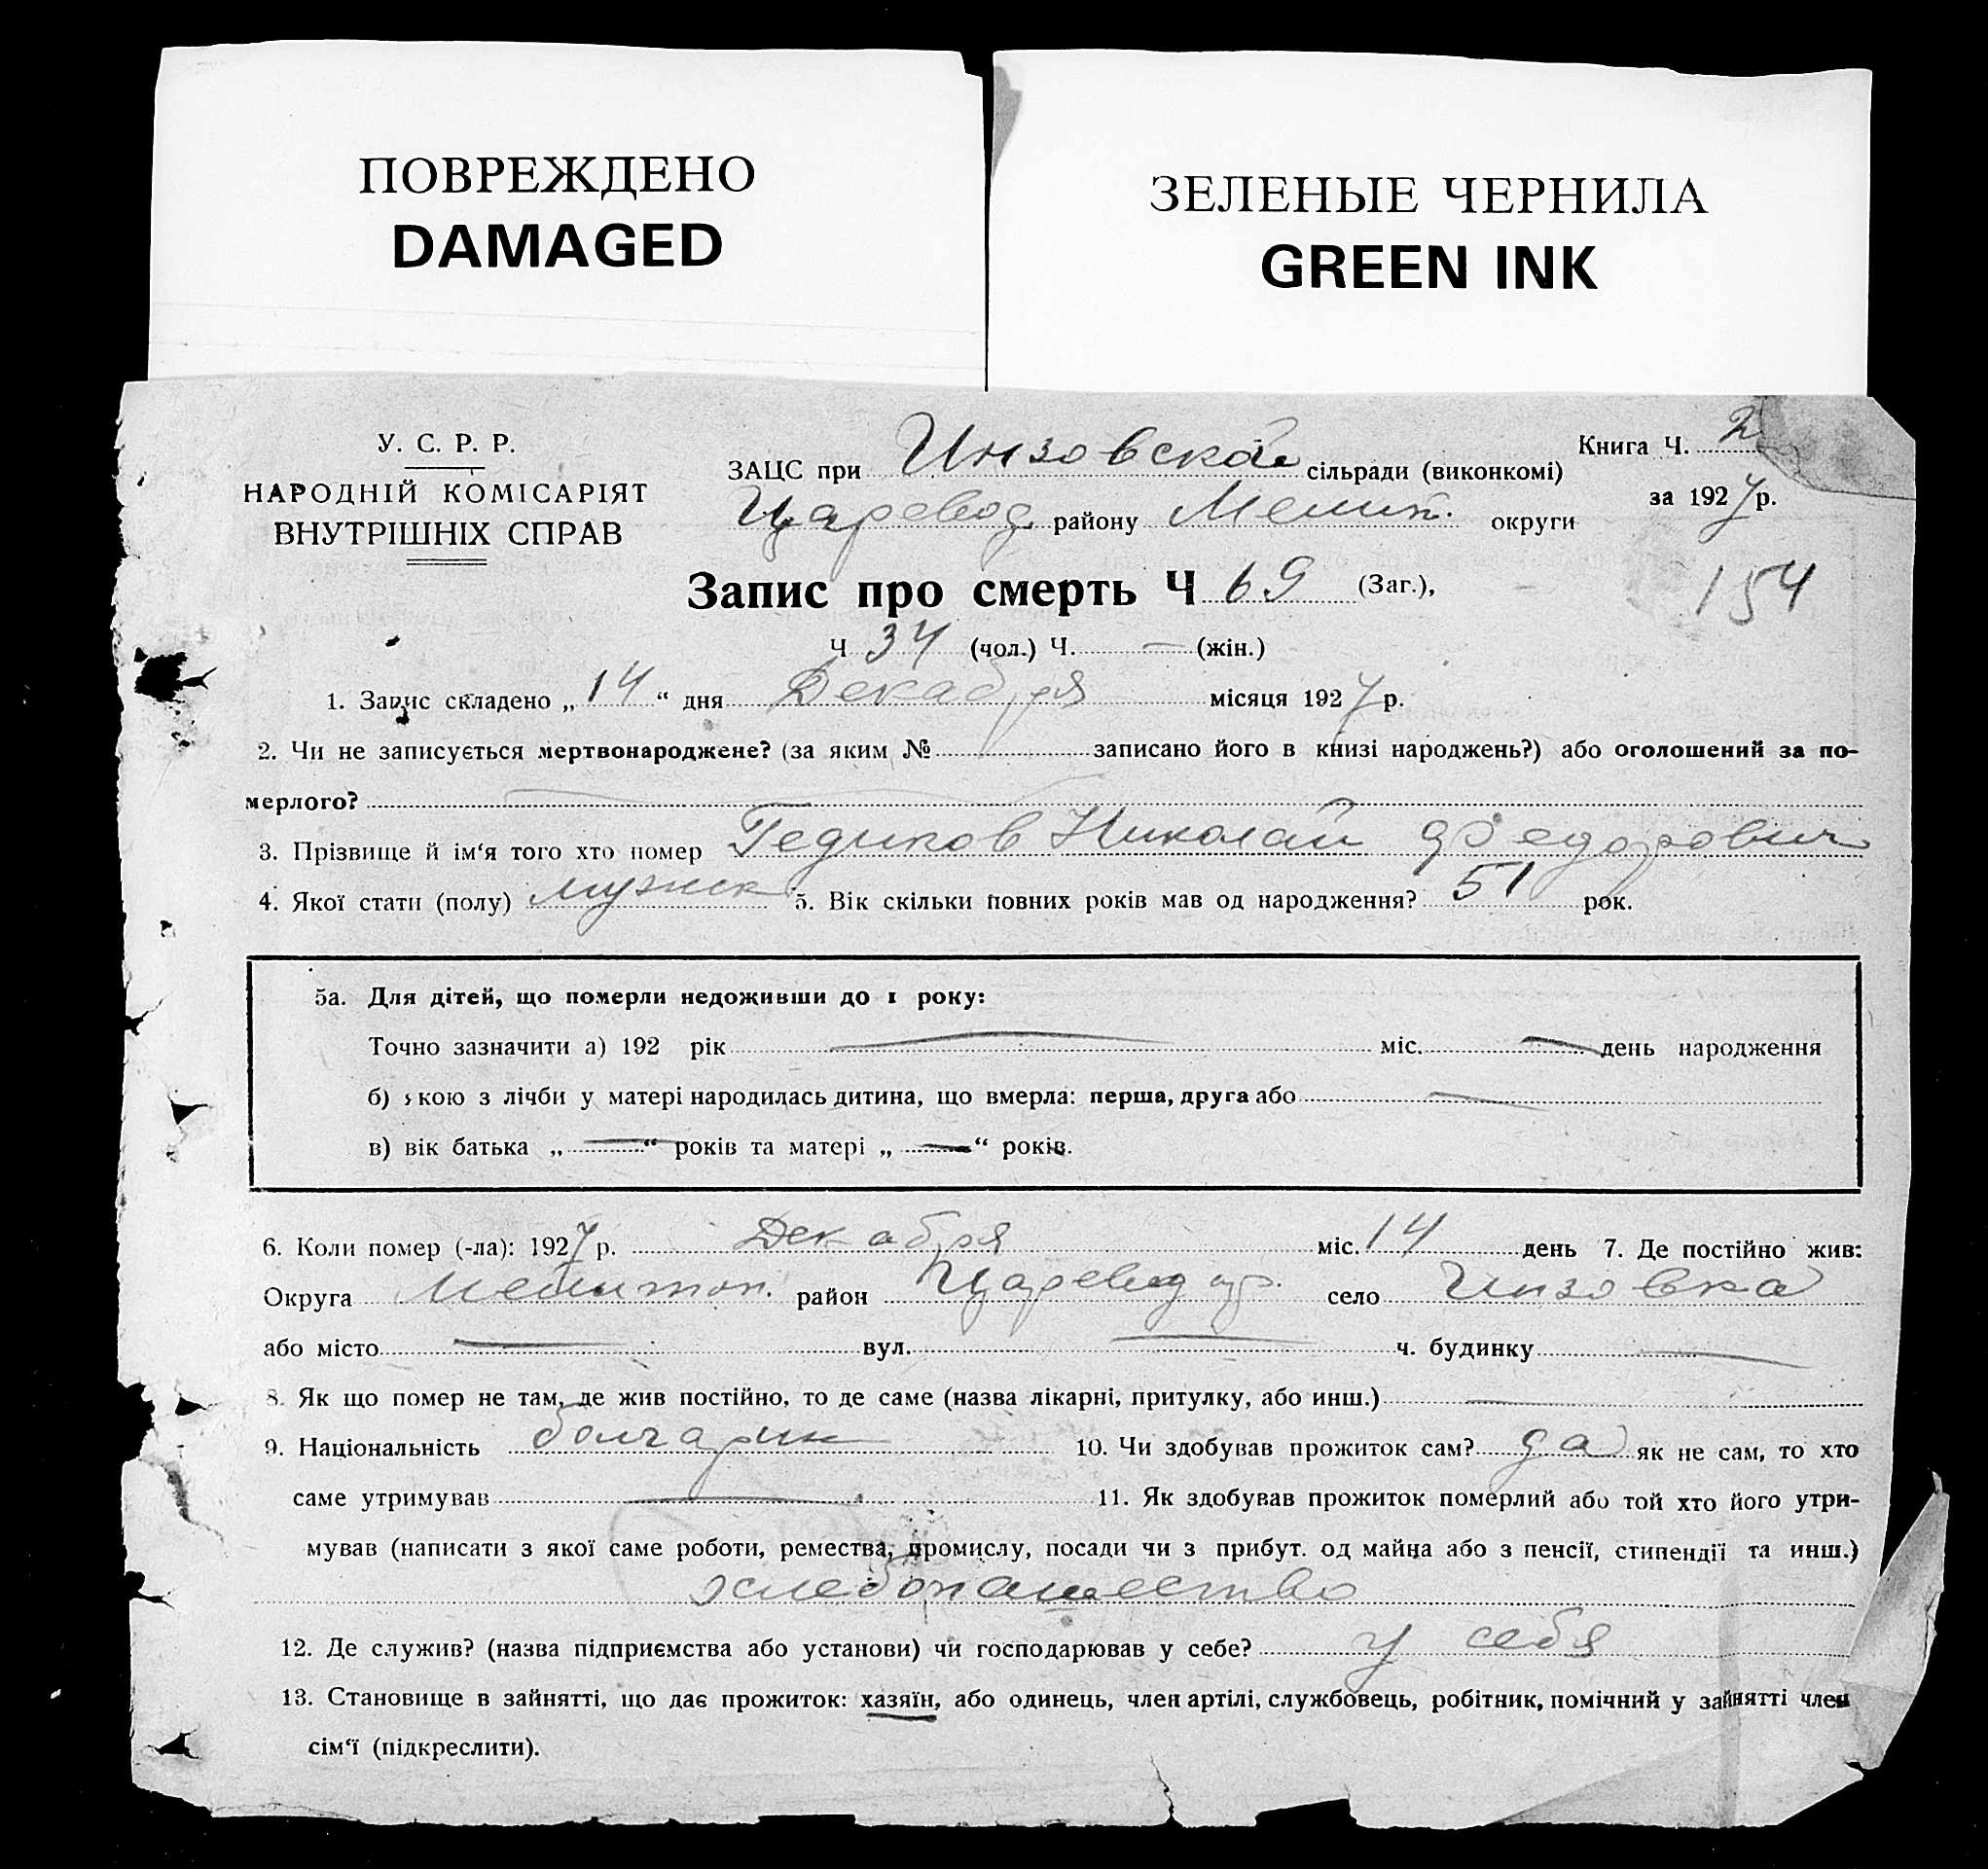 ПОВРЕЖДЕНО
DAMAGED
ЗЕЛЕНЫЕ ЧЕРНИЛА
GREEN INK
У. С. Р. Р.
НАРОДНІЙ КОМІСАРІЯТ
ВНУТРІШНІХ СПРАВ
ЗАЦС при Инзовской сільради (виконкомі)
Царевод районy Мелит. округи
Книга Ч. 2
за 1927 р.
154
Запис про смерть Ч 69 (Заг.),
Ч 34 (чол.) Ч. — (жін.)
1. Запис складено „ 14 “ дня Декабря місяця 1927 р.
2. Чи не записується мертвонароджене? (за яким № записано його в книзі народжень?) або оголошений за по-
мерлого?
3. Прізвище й ім‘я того хто помер Гедиков Николай Федорович
4. Якої стати (полу) мужск 5. Вік скільки повних років мав од народження? 51 рок.
5а. Для дітей, що померли недоживши до 1 року:
Точно зазначити а) 192 рік — міс. — день народження
б) якою з лічби у матері народилась дитина, що вмерла: перша, друга або —
в) вік батька „ — “ років та матері „ — “ років.
6. Коли помер (-ла): 1927 р. Декабря міс. 14 день 7. Де постійно жив:
Округа Мелитоп. район Цареводар. село Инзовка
або місто — вул. — ч. будинку —
8. Як що помер не там, де жив постійно, то де саме (назва лікарні, притулку, або инш.) —
9. Національність болгарин 10. Чи здобував прожиток сам? да як не сам, то хто
саме утримував — 11. Як здобував прожиток померлий або той хто його утри-
мував (написати з якої саме роботи, ремества, промислу, посади чи з прибут. од майна або з пенсії, стипендії та инш.)
хлебопашество
12. Де служив? (назва підприємства або установи) чи господарював у себе? у себя
13. Становище в зайнятті, що дає прожиток: хазяїн, або одинець, член артілі, службовець, робітник, помічний у зайнятті член
сім‘ї (підкреслити).